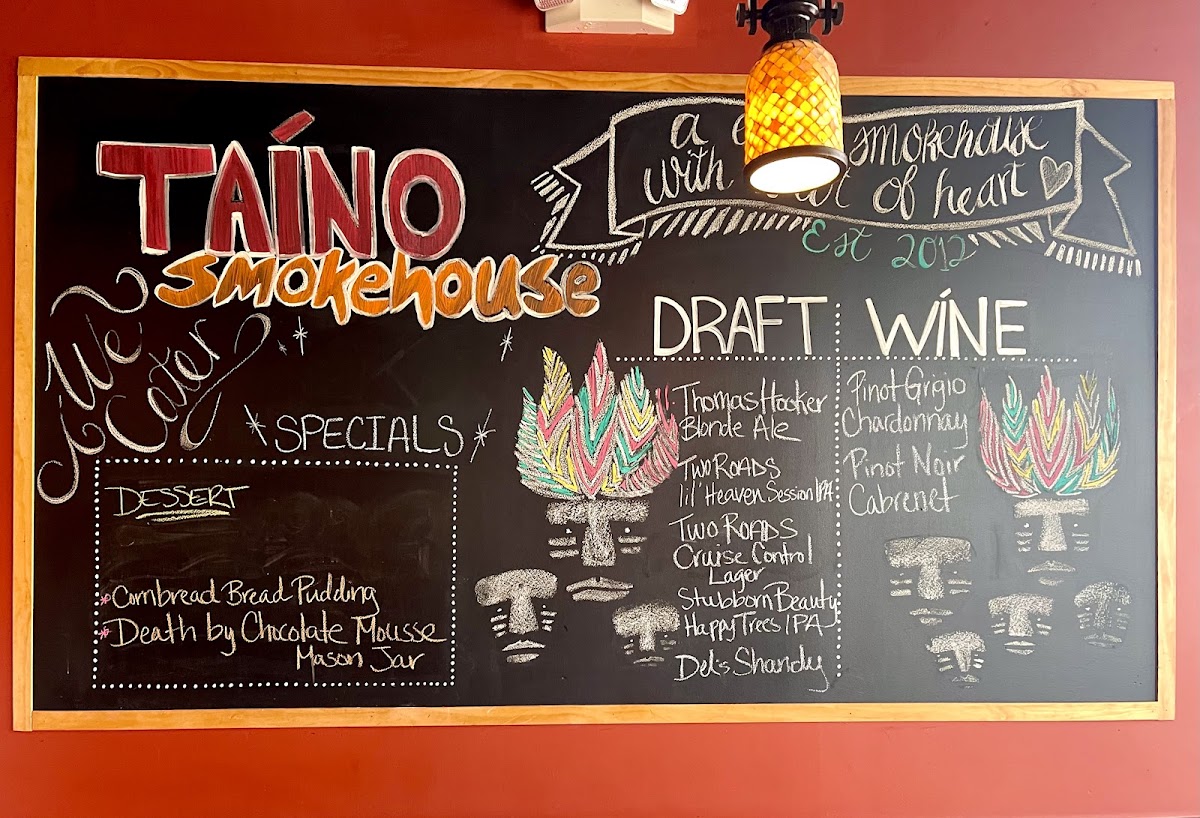 TAÍNO
smokehouse
We
Cater
a smokehouse
with lot of heart
Est 2012
SPECIALS
DESSERT
* Cornbread Bread Pudding
* Death by Chocolate Mousse
Mason Jar
DRAFT
Thomas Hooker
Blonde Ale
TWO ROADS
lil' Heaven Session IPA
TWO ROADS
Cruise Control
Lager
Stubborn Beauty
Happy Trees IPA
Del's Shandy
WÍNE
Pinot Grigio
Chardonnay
Pinot Noir
Cabrenet